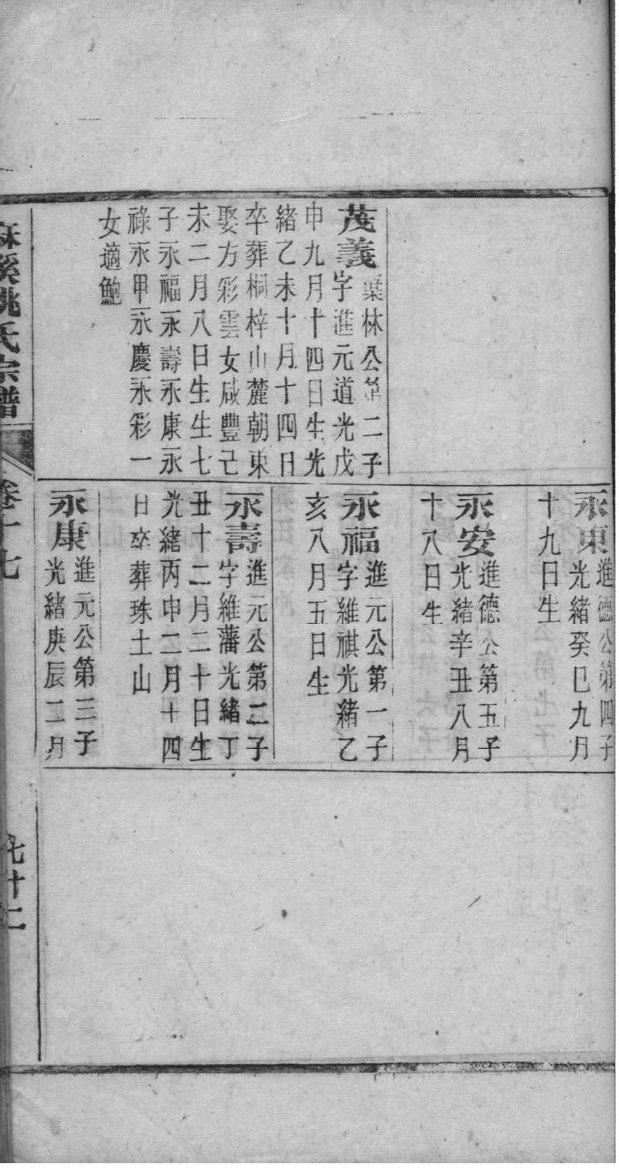 茂義葉林公第二子
字進元道光戊
申九月十四日生光
緒乙未十月十四日
卒葬桐梓山麓朝東
娶方彩雲女咸豐己
未二月八日生生七
子永福永壽永康永
祿永甲永慶永彩一
女適鮑
永東進德公第四子
光緒癸巳九月
十九日生
永安進德公第五子
光緒辛丑八月
十八日生
永福進元公第一子
字維祺光緒乙
亥八月五日生
永壽進元公第二子
字維藩光緒丁
丑十二月二十日生
光緒丙申二月十四
日卒葬珠土山
永康進元公第三子
光緒庚辰二月
麻溪姚氏宗譜
卷十七
七十二